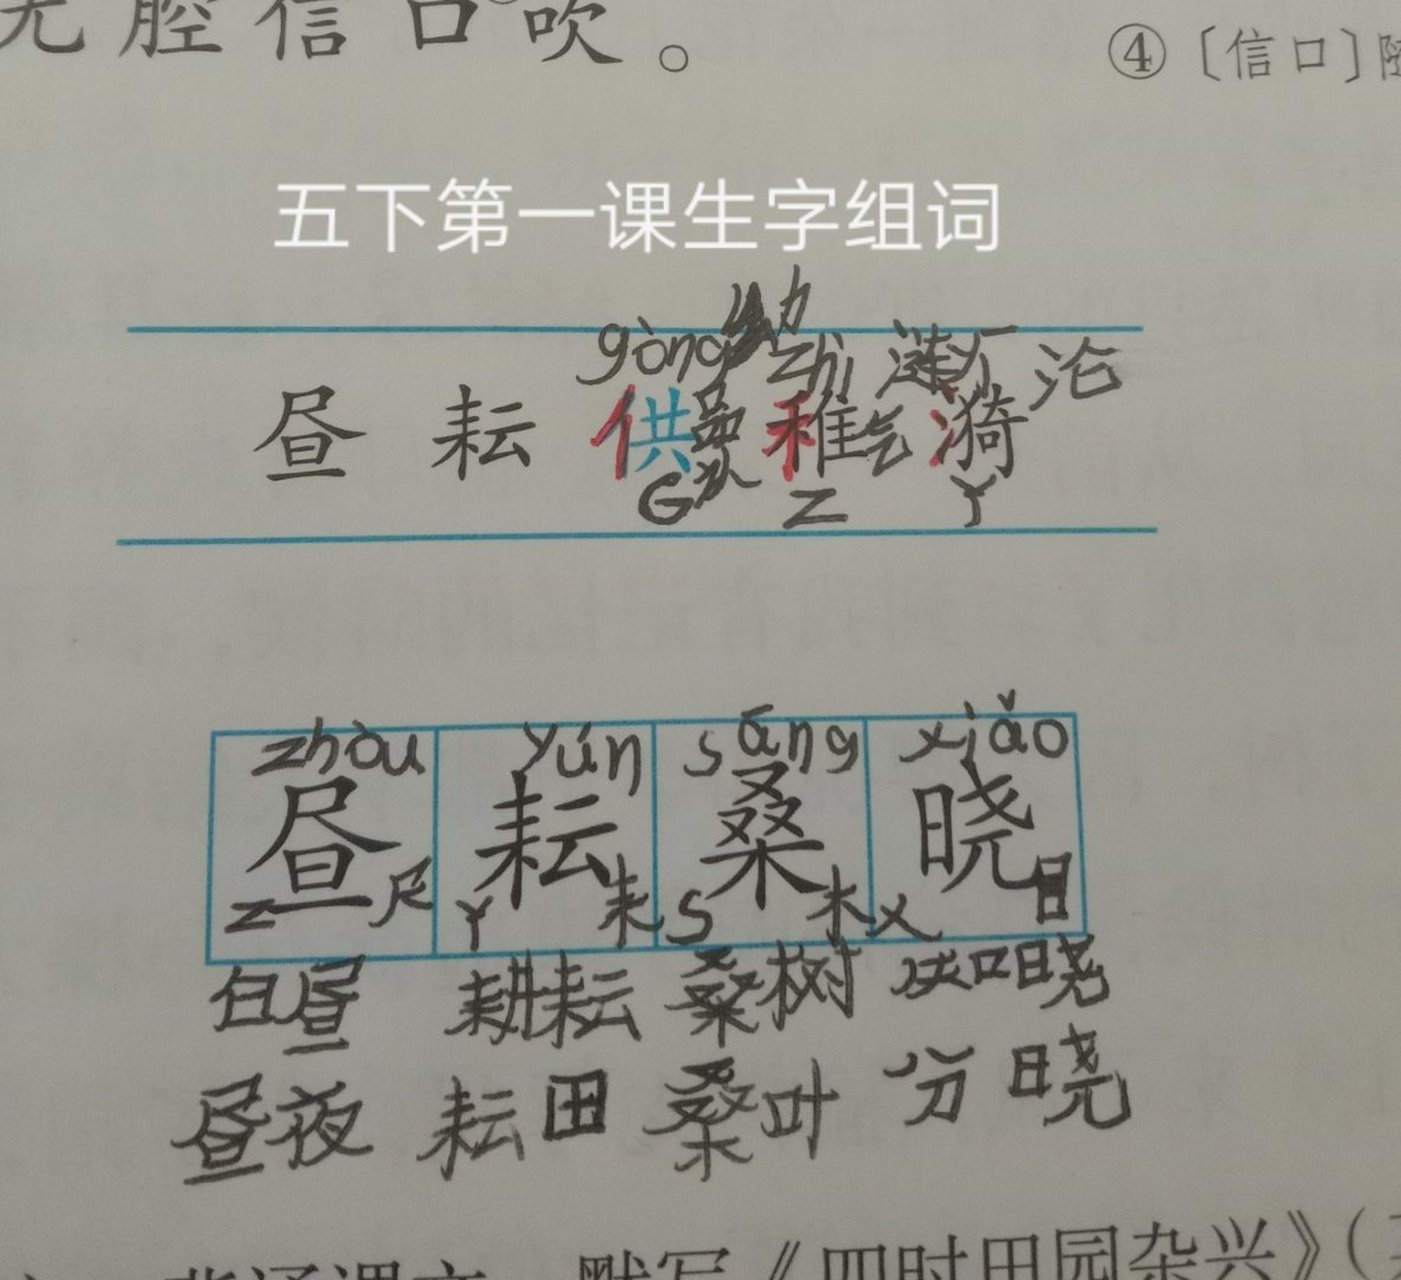 无腔信口吹。
④〔信口〕随
五下第一课生字组词
幼
gòng zhì 涟yī 沦
昼 耘 供 稚气 漪
G Z Y
zhòu yún sāng xiǎo
昼 耘 桑 晓
Z 尺 Y 耒 S 木 X 日
白昼 耕耘 桑树 知晓
昼夜 耘田 桑叶 分晓
默写《四时田园杂兴》(